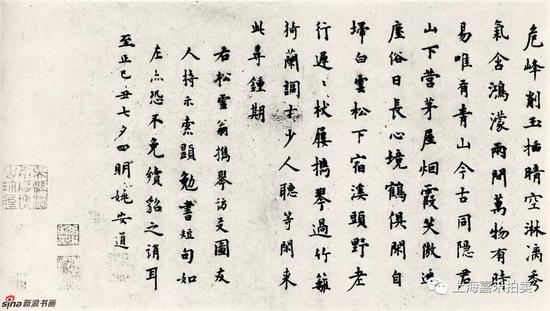 危峰削玉插晴空淋漓秀
氣含鴻濛兩間萬物有時
易唯有青山今古同隱君
山下營茅屋烟霞笑傲遠
塵俗日長心境鶴俱閑自
掃白雲松下宿溪頭野老
行遲〻杖屨携琴過竹籬
猗蘭調古少人聽等閑来
此尋鍾期
右松雪翁携琴訪友圖友
人持示索題勉書短句如
左恐不免續貂之誚耳
至正己丑七夕四明姚安道
sina 新浪书画
上海嘉禾拍卖